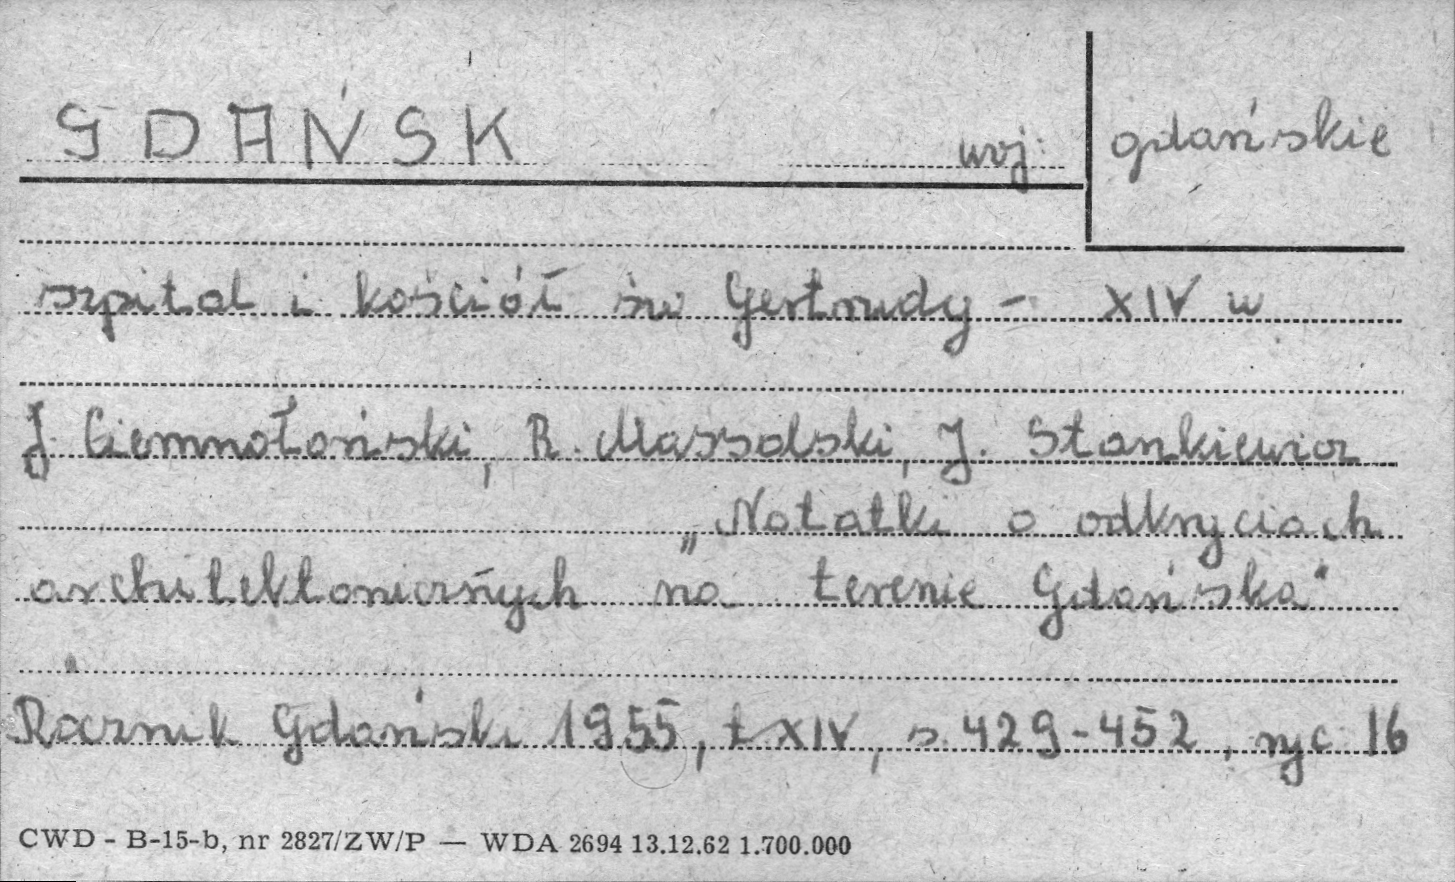 GDAŃSK woj. gdańskie
szpital i kościół św Gertrudy - XIV w
J. Ciemnołoński, R. Massalski, J. Stankiewicz
„Notatki o odkryciach
architektonicznych na terenie Gdańska"
Rocznik Gdański 1955, t XIV, s. 429-452, ryc 16
CWD - B-15-b, nr 2827/ZW/P — WDA 2694 13.12.62 1.700.000